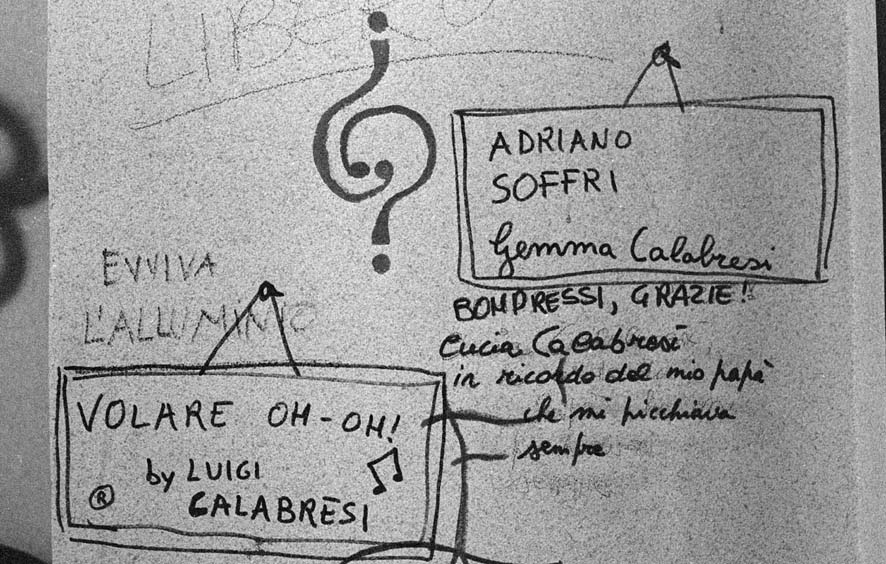 LIBERO
ADRIANO
SOFFRI
Gemma Calabresi
BOMPRESSI, GRAZIE!
Lucia Calabresi
in ricordo del mio papà
che mi picchiava
sempre
EVVIVA
L'ALLUMINIO
VOLARE OH-OH!
by LUIGI
® CALABRESI